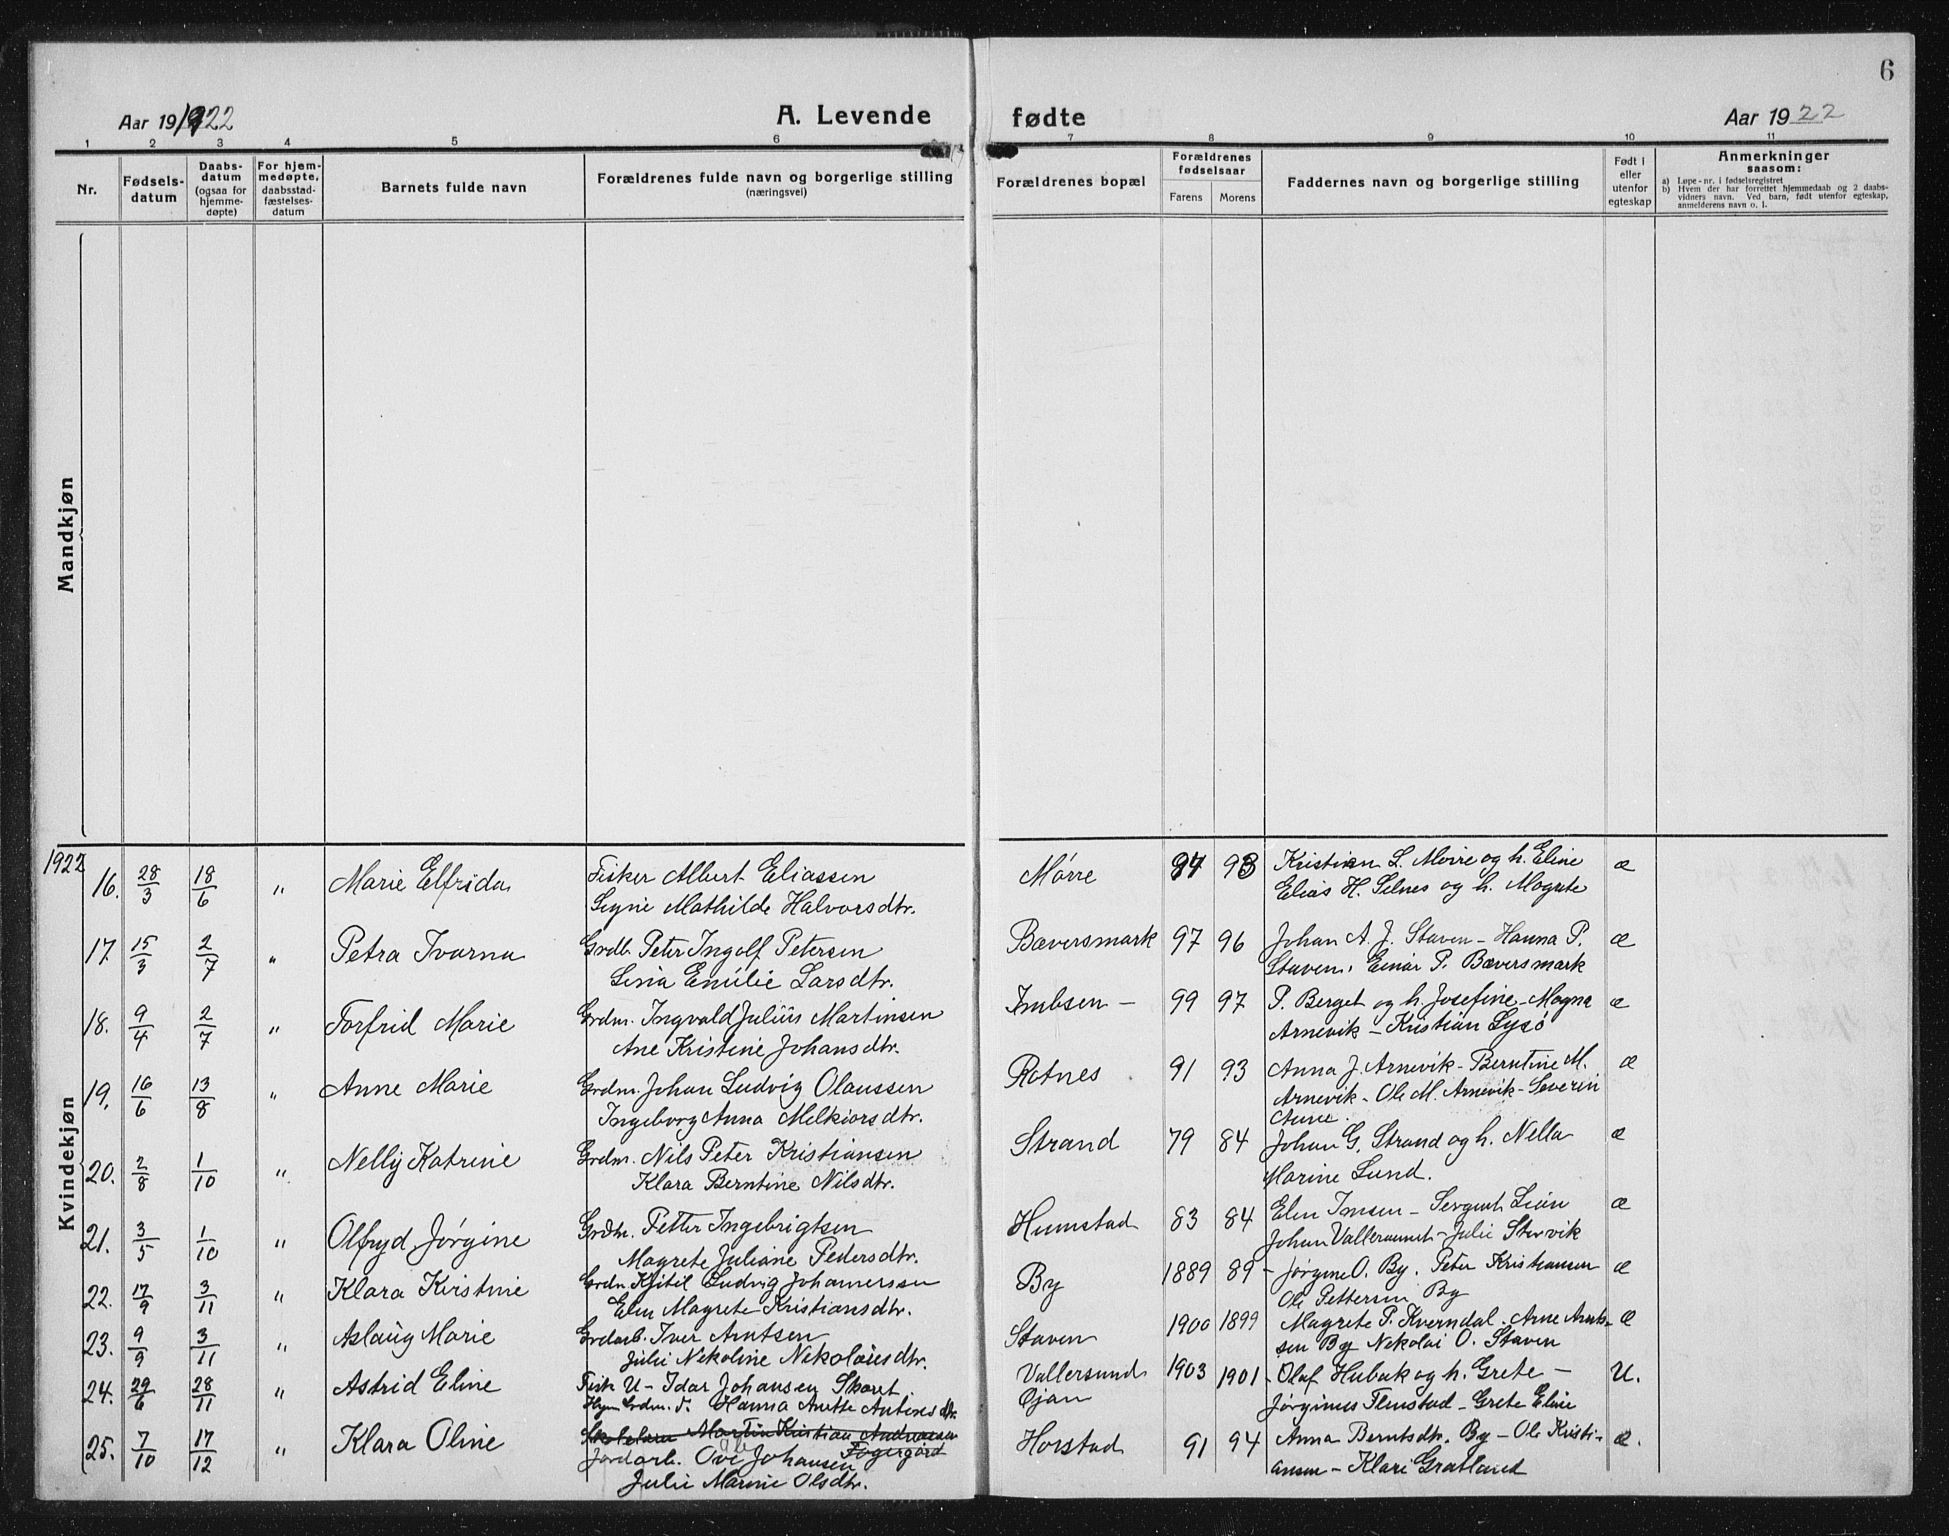 6
Aar 1922
A. Levende fødte
Aar 1922
1 2 3 4 5 6 7 8 9 10 11
Nr.
Fødsels-
datum
Daabs-
datum
(ogsaa for
hjemme-
døpte)
For hjem-
medøpte,
daabsstad-
fæstelses-
datum
Barnets fulde navn
Forældrenes fulde navn og borgerlige stilling
(næringsvei)
Forældrenes bopæl
Forældrenes
fødselsaar
Farens Morens
Faddernes navn og borgerlige stilling
Født i
eller
utenfor
egteskap
Anmerkninger
saasom:
a) Løpe-nr. i fødselsregistret
b) Hvem der har forrettet hjemmedaab og 2 daabs-
vidners navn. Ved barn, født utenfor egteskap,
anmelderens navn o. l.
Mandkjøn
Kvindekjøn
1922
16. 28/3 18/6 " Marie Elfrida Fisker Albert Eliassen Mørre 94 93 Kristian L. Mørre og h. Eline æ
Signe Mathilde Halvorsdtr. Elias H. Selnes og h. Magrete
17. 15/3 2/7 " Petra Ivarna Grdb. Peter Ingolf Petersen Bæversmark 97 96 Johan A. J. Staven - Hanna P. æ
Lina Emilie Larsdtr. Staven, Einar P. Bæversmark
18. 9/4 2/7 " Torfrid Marie Grdm. Ingvald Julius Martinsen Imbsen - 99 97 P. Berget og h. Josefine - Magna æ
Ane Kristine Johansdtr. Arnevik - Kristian Lysø
19. 16/6 13/8 " Anne Marie Grdm. Johan Ludvig Olaussen Rotnes 91 93 Anna J. Arnevik - Berntine M. æ
Ingeborg Anna Melkiorsdtr. Arnevik - Ole M. Arnevik - Severin
Aune
20. 2/8 1/10 " Nelly Katrine Grdm. Nils Peter Kristiansen Strand 79 84 Johan G. Strand og h. Nella æ
Klara Berntine Nilsdtr. Marine Lund.
21. 3/5 1/10 " Olfryd Jørgine Grdm. Petter Ingebrigtsen Humstad 83 84 Elen Imsen - Sergent æ
Magrete Juliane Pedersdtr. Johan Vallersund - Julie Størvik
22. 17/9 3/11 " Klara Kristine Grdm. Kjetil Ludvig Johannessen By 1889 89 - Jørgine O. By. Peter Kristiansen æ
Elen Magrete Kristiansdtr. Ole Pettersen By
23. 9/9 3/11 " Aslaug Marie Grdarb. Iver Arntsen Staven 1900 1899 Magrete P. Kverndal. Arne Arnt- æ
Julie Nekoline Nekolaiesdtr. sen By Nekolai O. Staven
24. 29/6 28/11 " Astrid Eline Fisk U- Idar Johansen Skaret Vallersund 1903 1901 - Olaf Hubak og h. Grete - U.
Hjem. Grdm. d. Hanna Anette Antonesdtr. Øjan Jørginus Flenstad - Grete Eline
25. 7/10 17/12 " Klara Oline Martin Kristian Andreasen Horstad 91 94 Anna Berntsdtr. By - Ole Kristi- æ.
Fagergård
Jordarb. Ove Johansen ansen - Klara Gratland
Julie Marine Olsdtr.